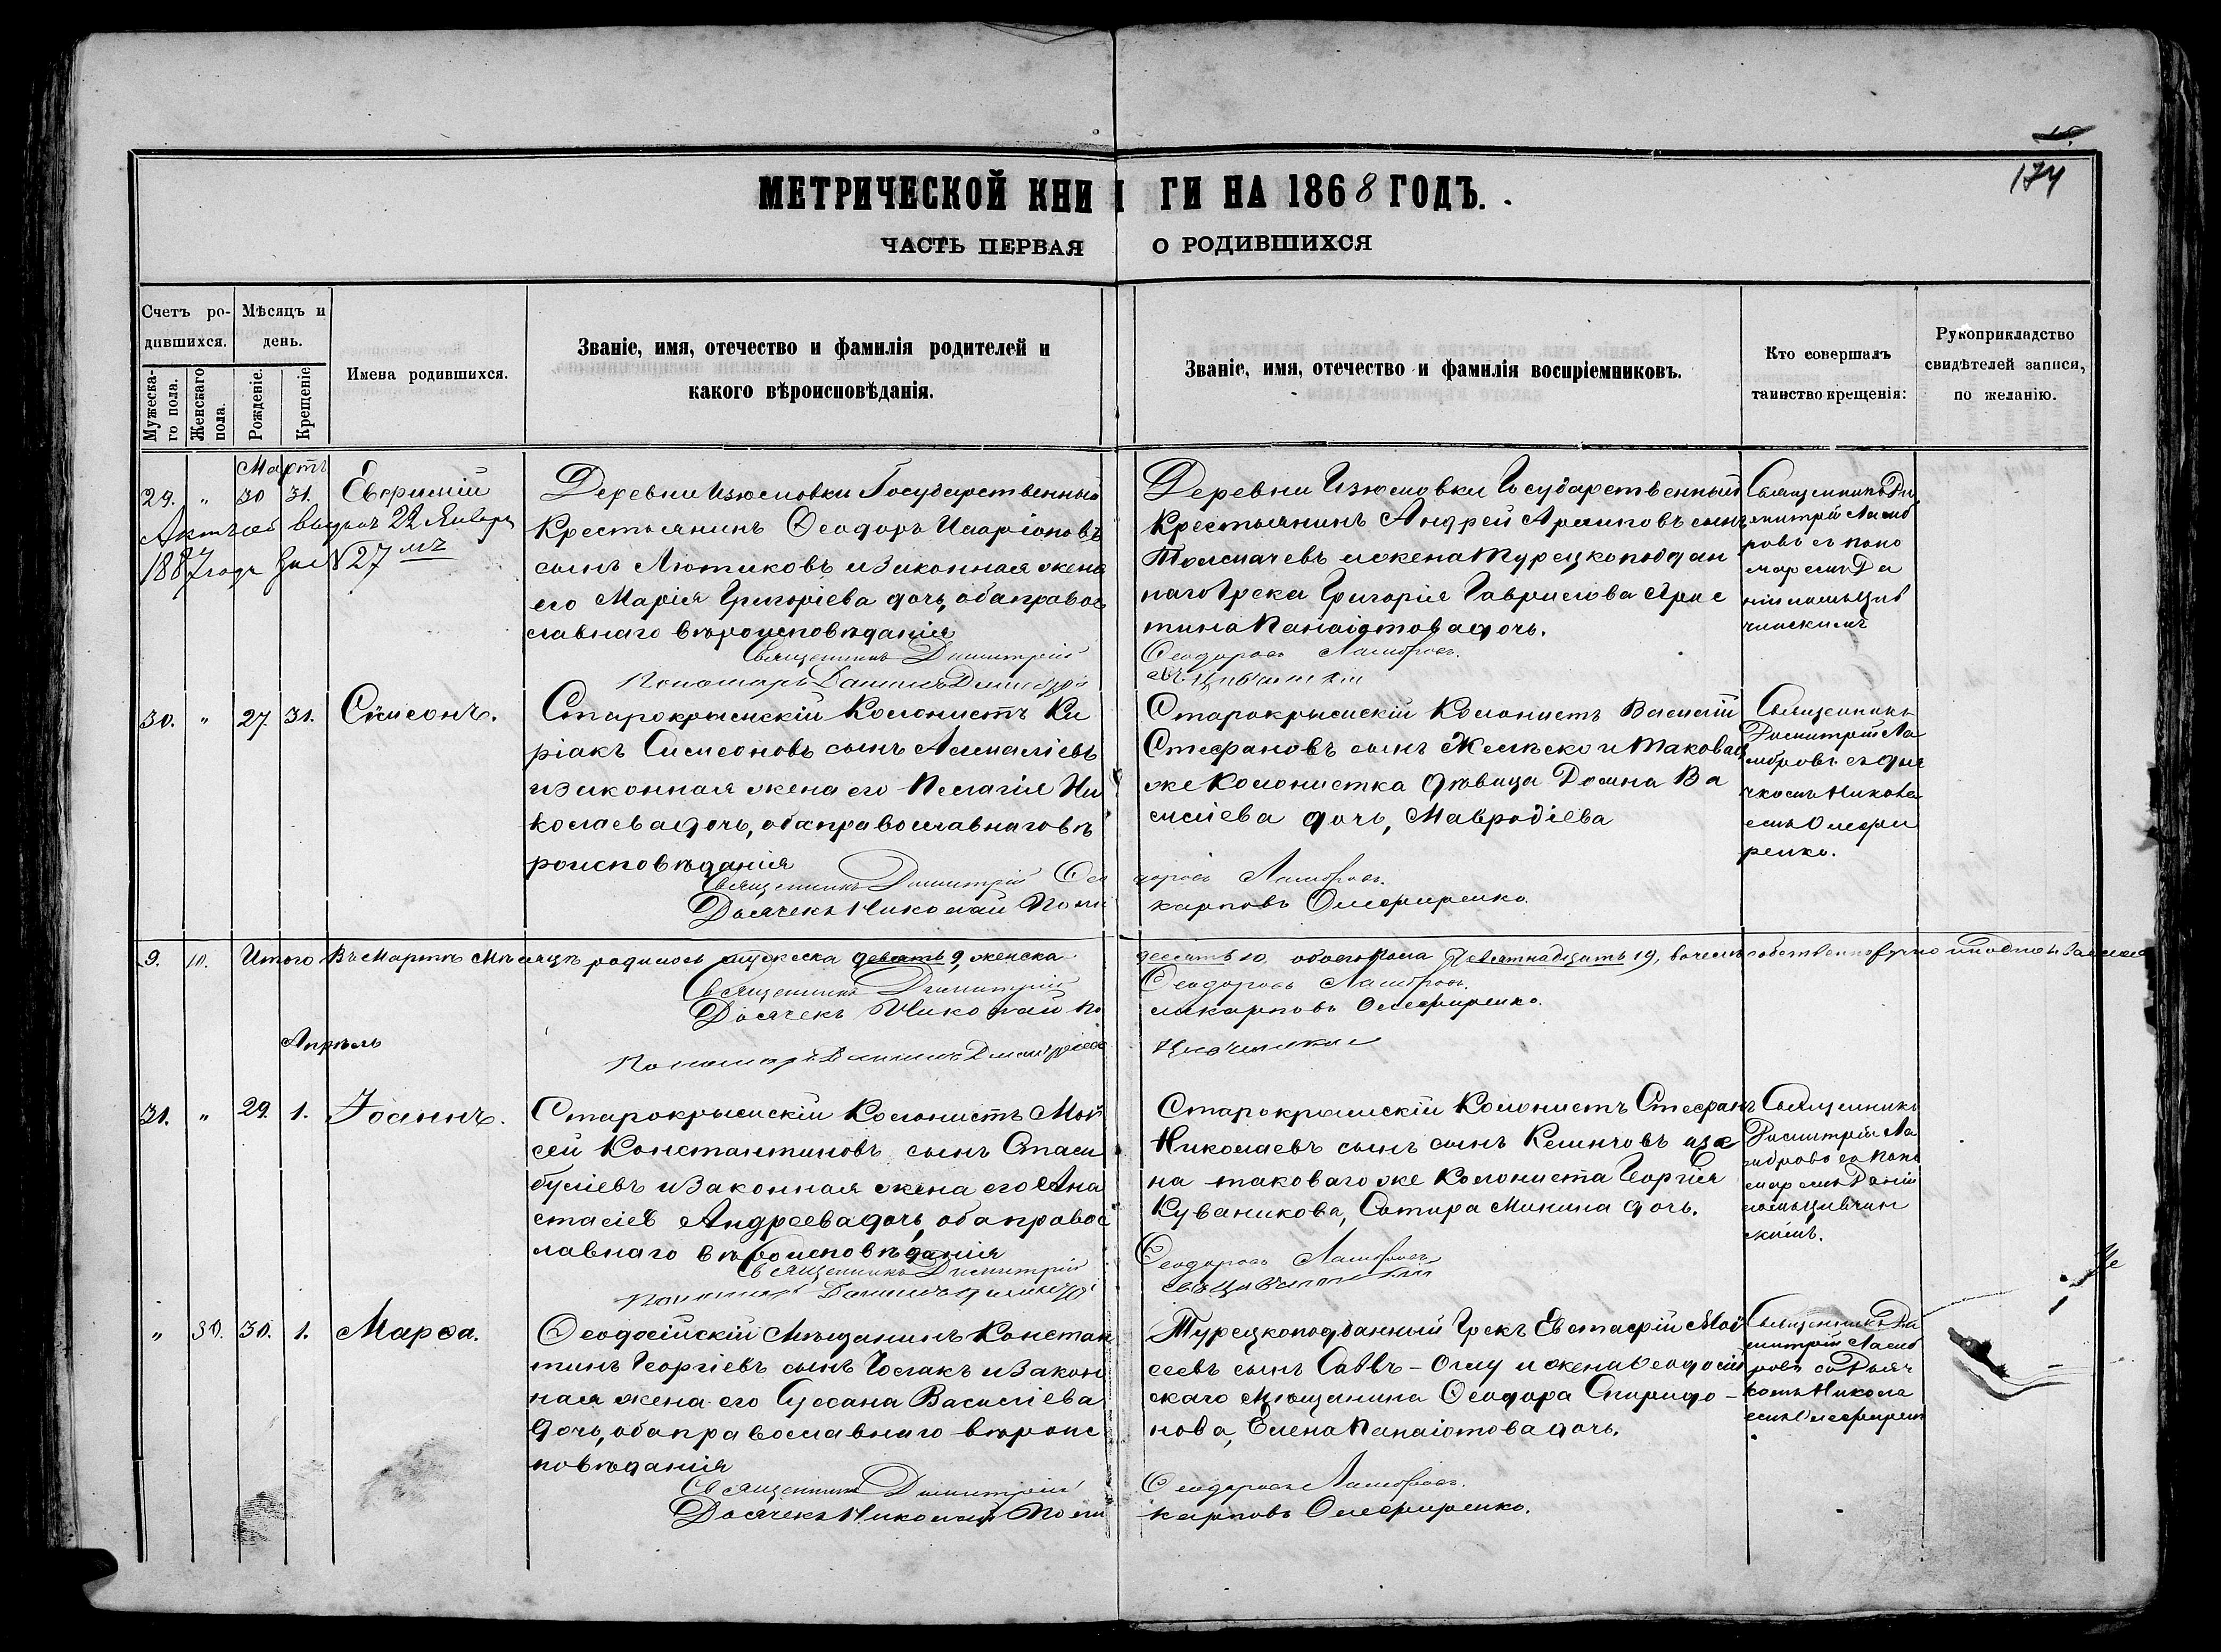 174
МЕТРИЧЕСКОЙ КНИГИ НА 1868 ГОДЪ.
ЧАСТЬ ПЕРВАЯ О РОДИВШИХСЯ
Счетъ родившихся.
Мужескаго пола.
Женскаго пола.
Мѣсяцъ и день.
Рожденіе.
Крещеніе
Имена родившихся.
Званіе, имя, отечество и фамилія родителей и
какого вѣроисповѣданія.
Званіе, имя, отечество и фамилія воспріемниковъ.
Кто совершалъ
таинство крещенія:
Рукоприкладство
свидѣтелей записи,
по желанію.
Мартъ
29. " 30 31. Евфимій
22 Января
1887 года № 27мъ
Деревни Изюмовки Государственный
Крестьянинъ Ѳеодоръ Иларіоновъ
сынъ Лютиковъ и законная жена
его Марія Григоріева дочь, оба православ
славнаго вѣроисповѣданія
Священникъ Димитрій
Пономарь Даніилъ
Деревни Изюмовки Государственный
Крестьянинъ Андрей сынъ
Толмачевъ и жена Турецкоподдан
наго Грека Григорія Гаврилова
тина Панаіотова дочь.
Ѳеодоровъ Ламбровъ.
Священникъ Ди
митрій Ламб
ровъ съ поно
маремъ Да
ніиломъ Цив
чинскимъ
30. " 27. 31. Симеонъ.
Старокрымскій Колонистъ Ки
ріакъ Симеоновъ сынъ
и законная жена его Пелагія Ни
колаева дочь, оба православнаго вѣ
роисповѣданія
Священникъ Димитрій Ѳео
Дьячекъ Николай Поли
Старокрымскій Колонистъ Василій
Стефановъ сынъ Желѣско и таковая
же Колонистка дѣвица Домна Ва
силіева дочь, Мавродіева
доровъ Ламбровъ.
карповъ Олефиренко.
Священникъ
Димитрій Ла
мбровъ съ дья
чкомъ Никола
емъ Олефи
ренко.
9. 10. Итого въ Мартѣ Мѣсяцѣ родилось мужеска девять 9, женска
десять 10, обоего пола девятнадцать 19, въ чемъ собственноручно
Священникъ Димитрій
Дьячекъ Николай По
Ѳеодоровъ Ламбровъ.
ликарповъ Олефиренко.
Пономарь Даніилъ Димитріевъ
Апрѣль
31. " 29. 1. Іоаннъ.
Старокрымскій Колонистъ Мой
сей Константиновъ сынъ Стам
буліевъ и законная жена его Ана
стасіе Андреева дочь, оба правос
лавнаго вѣроисповѣданія
Священникъ Димитрій
Пономарь Даніилъ
Старокрымскій Колонистъ Стефанъ
Николаевъ сынъ сынъ и же
на таковаго же Колониста Георгія
Куваникова, Сотира Минина дочь.
Ѳеодоровъ Ламбровъ
Священникъ
Димитрій Ла
мбровъ съ поно
маремъ Даніи
ломъ Цивчин
скимъ.
" 30. 30. 1. Марѳа.
Ѳеодосійскій Мѣщанинъ Констан
тинъ Георгіевъ сынъ и закон
ная жена его Сусана Василіева
дочь, оба православнаго вѣроис
повѣданія
Священникъ Димитрій
Дьячекъ Николай Поли
Турецкоподданный Грекъ Евстафій Мой
сеевъ сынъ Саввъ-Оглу и жена Ѳеодосій
скаго Мѣщанина Ѳеодора Спиридо-
нова, Елена Панаіотова дочь.
Ѳеодоровъ Ламбровъ.
карповъ Олефиренко.
Священникъ Ди
митрій Ламб
ровъ съ Дьяч
комъ Никола
емъ Олефирен